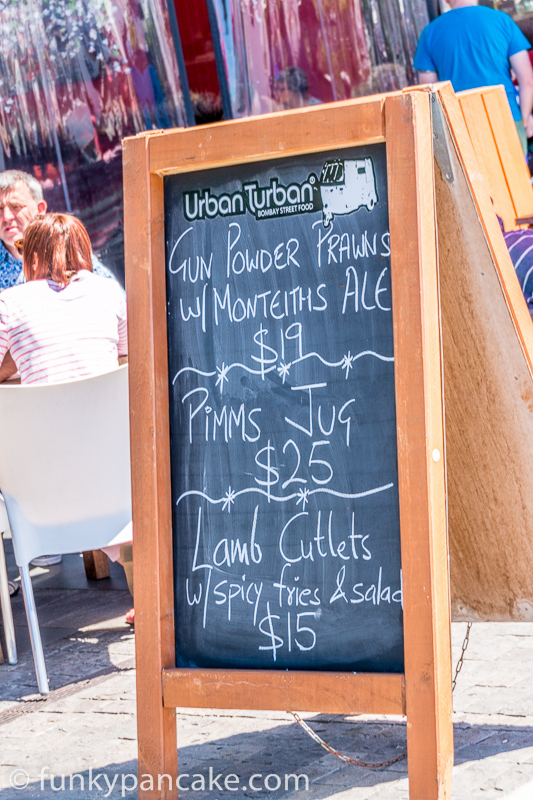 Urban Turban®
BOMBAY STREET FOOD
GUN POWDER PRAWNS
W/ MONTEITHS ALE
$19
PIMMS JUG
$25
Lamb Cutlets
w/ spicy fries & salad
$15
© funkypancake.com